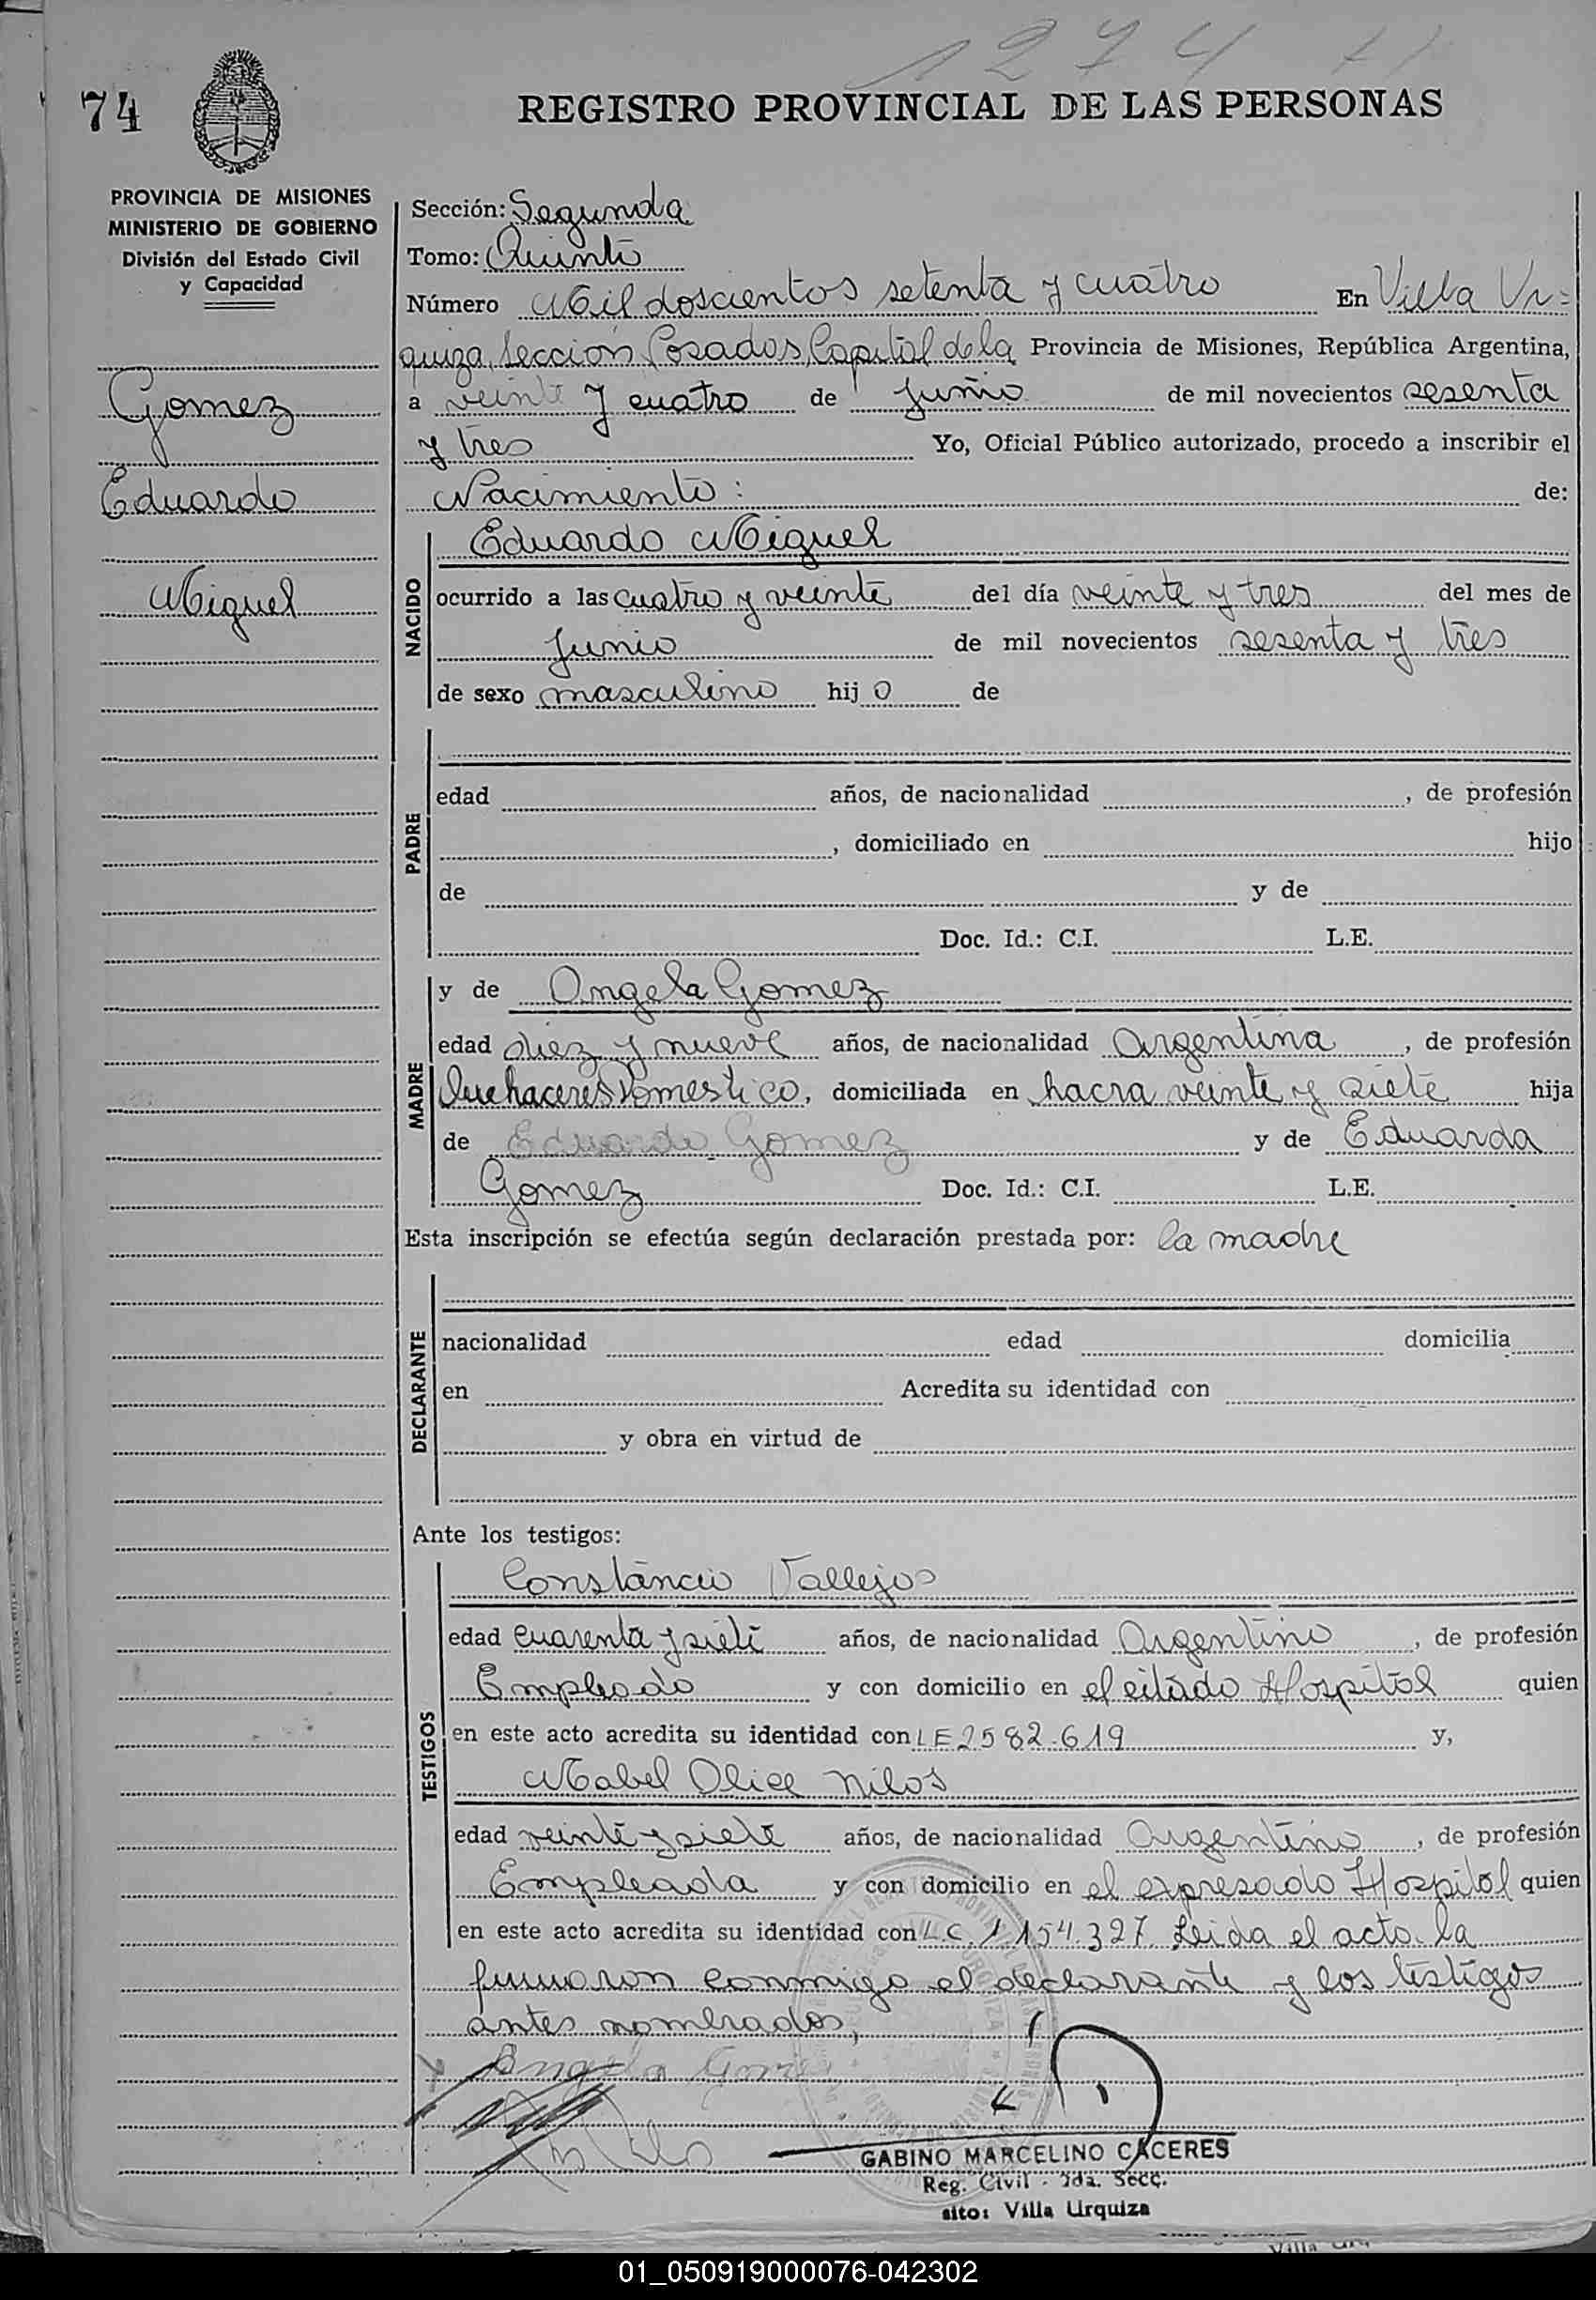 1274
74
REGISTRO PROVINCIAL DE LAS PERSONAS
PROVINCIA DE MISIONES
MINISTERIO DE GOBIERNO
División del Estado Civil
y Capacidad
Gomez
Eduardo
Miguel
Sección: Segunda
Tomo: Quinto
Número Mil doscientos setenta y cuatro En Villa Ur=
quiza, Sección Posadas, Capital de la Provincia de Misiones, República Argentina,
a veinte y cuatro de Junio de mil novecientos sesenta
y tres Yo, Oficial Público autorizado, procedo a inscribir el
Nacimiento: de:
NACIDO
Eduardo Miguel
ocurrido a las cuatro y veinte del día veinte y tres del mes de
Junio de mil novecientos sesenta y tres
de sexo masculino hijo de
PADRE
edad años, de nacionalidad , de profesión
, domiciliado en hijo
de y de
Doc. Id.: C.I. L.E.
MADRE
y de Angela Gomez
edad diez y nueve años, de nacionalidad Argentina, de profesión
Quehaceres Domestico, domiciliada en hacra veinte y siete hija
de Eduardo Gomez y de Eduarda
Gomez Doc. Id.: C.I. L.E.
Esta inscripción se efectúa según declaración prestada por: la madre
DECLARANTE
nacionalidad edad domicilia
en Acredita su identidad con
y obra en virtud de
Ante los testigos:
TESTIGOS
Constancio Vallejos
edad cuarenta y siete años, de nacionalidad Argentino, de profesión
Empleado y con domicilio en el citado Hospital quien
en este acto acredita su identidad con LE 2582.619 y,
Mabel Olice Nilos
edad veinte y siete años, de nacionalidad Argentino, de profesión
Empleada y con domicilio en el expresado Hospital quien
en este acto acredita su identidad con L.C. 1.154.327 Leida el acto la
firmaron conmigo el declarante y los testigos
antes nombrados,
Angela Gomez
GABINO MARCELINO CACERES
Reg. Civil - 2da. Secc.
sito: Villa Urquiza
01_050919000076-042302